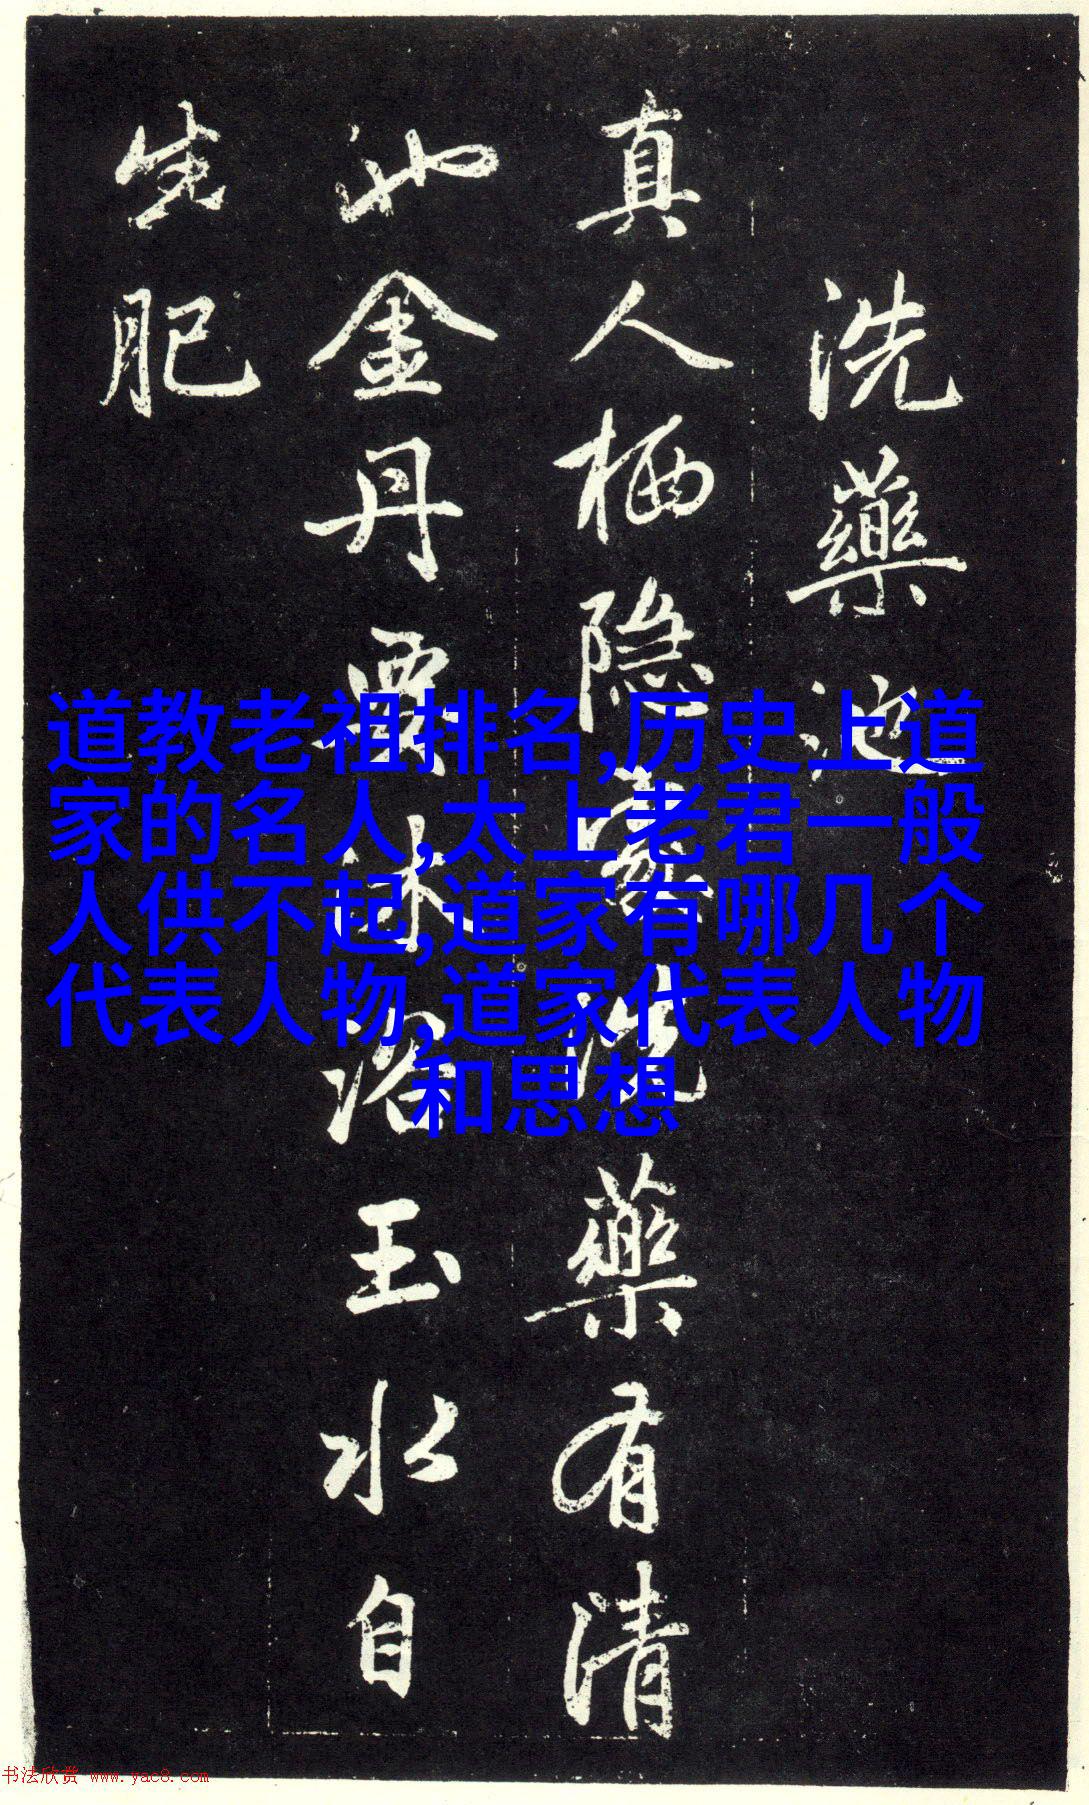 洗藥池
真人栖隐處洗藥有清
池金丹要沐浴玉水自
生肥
道教老祖排名,历史上道
家的名人,太上老君一般
人供不起,道家有哪几个
代表人物,道家代表人物
和思想
书法欣赏 www.yac8.com